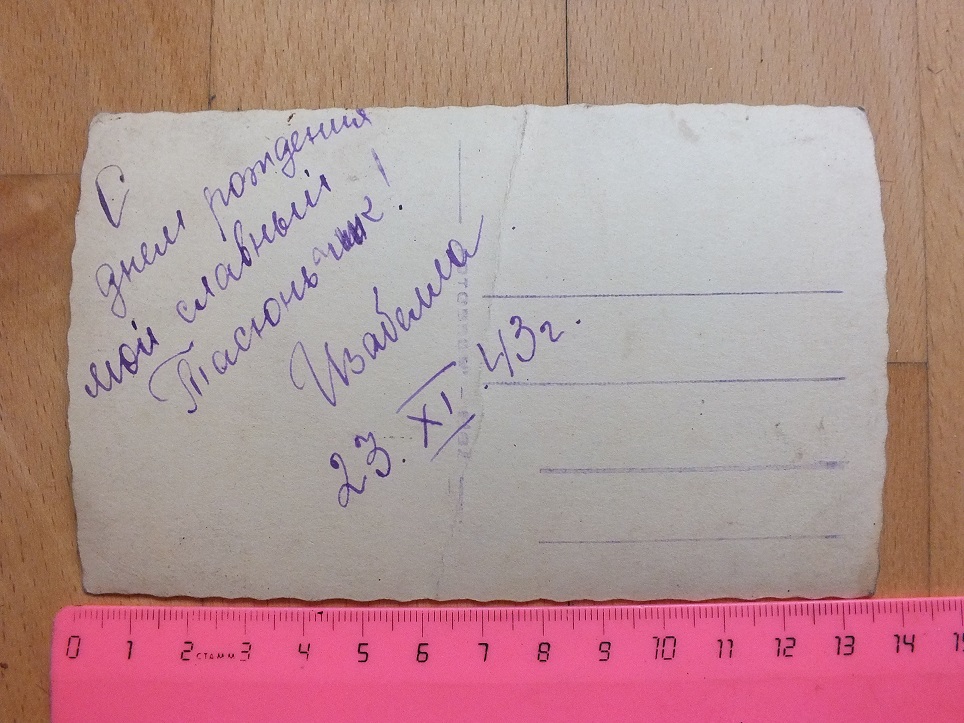 С
днем рождения
мой славный
Тасюньчик!
Изабелла
23. XI. 43 г.
0 1 2 СТАММ 3 4 5 6 7 8 9 10 11 12 13 14 15